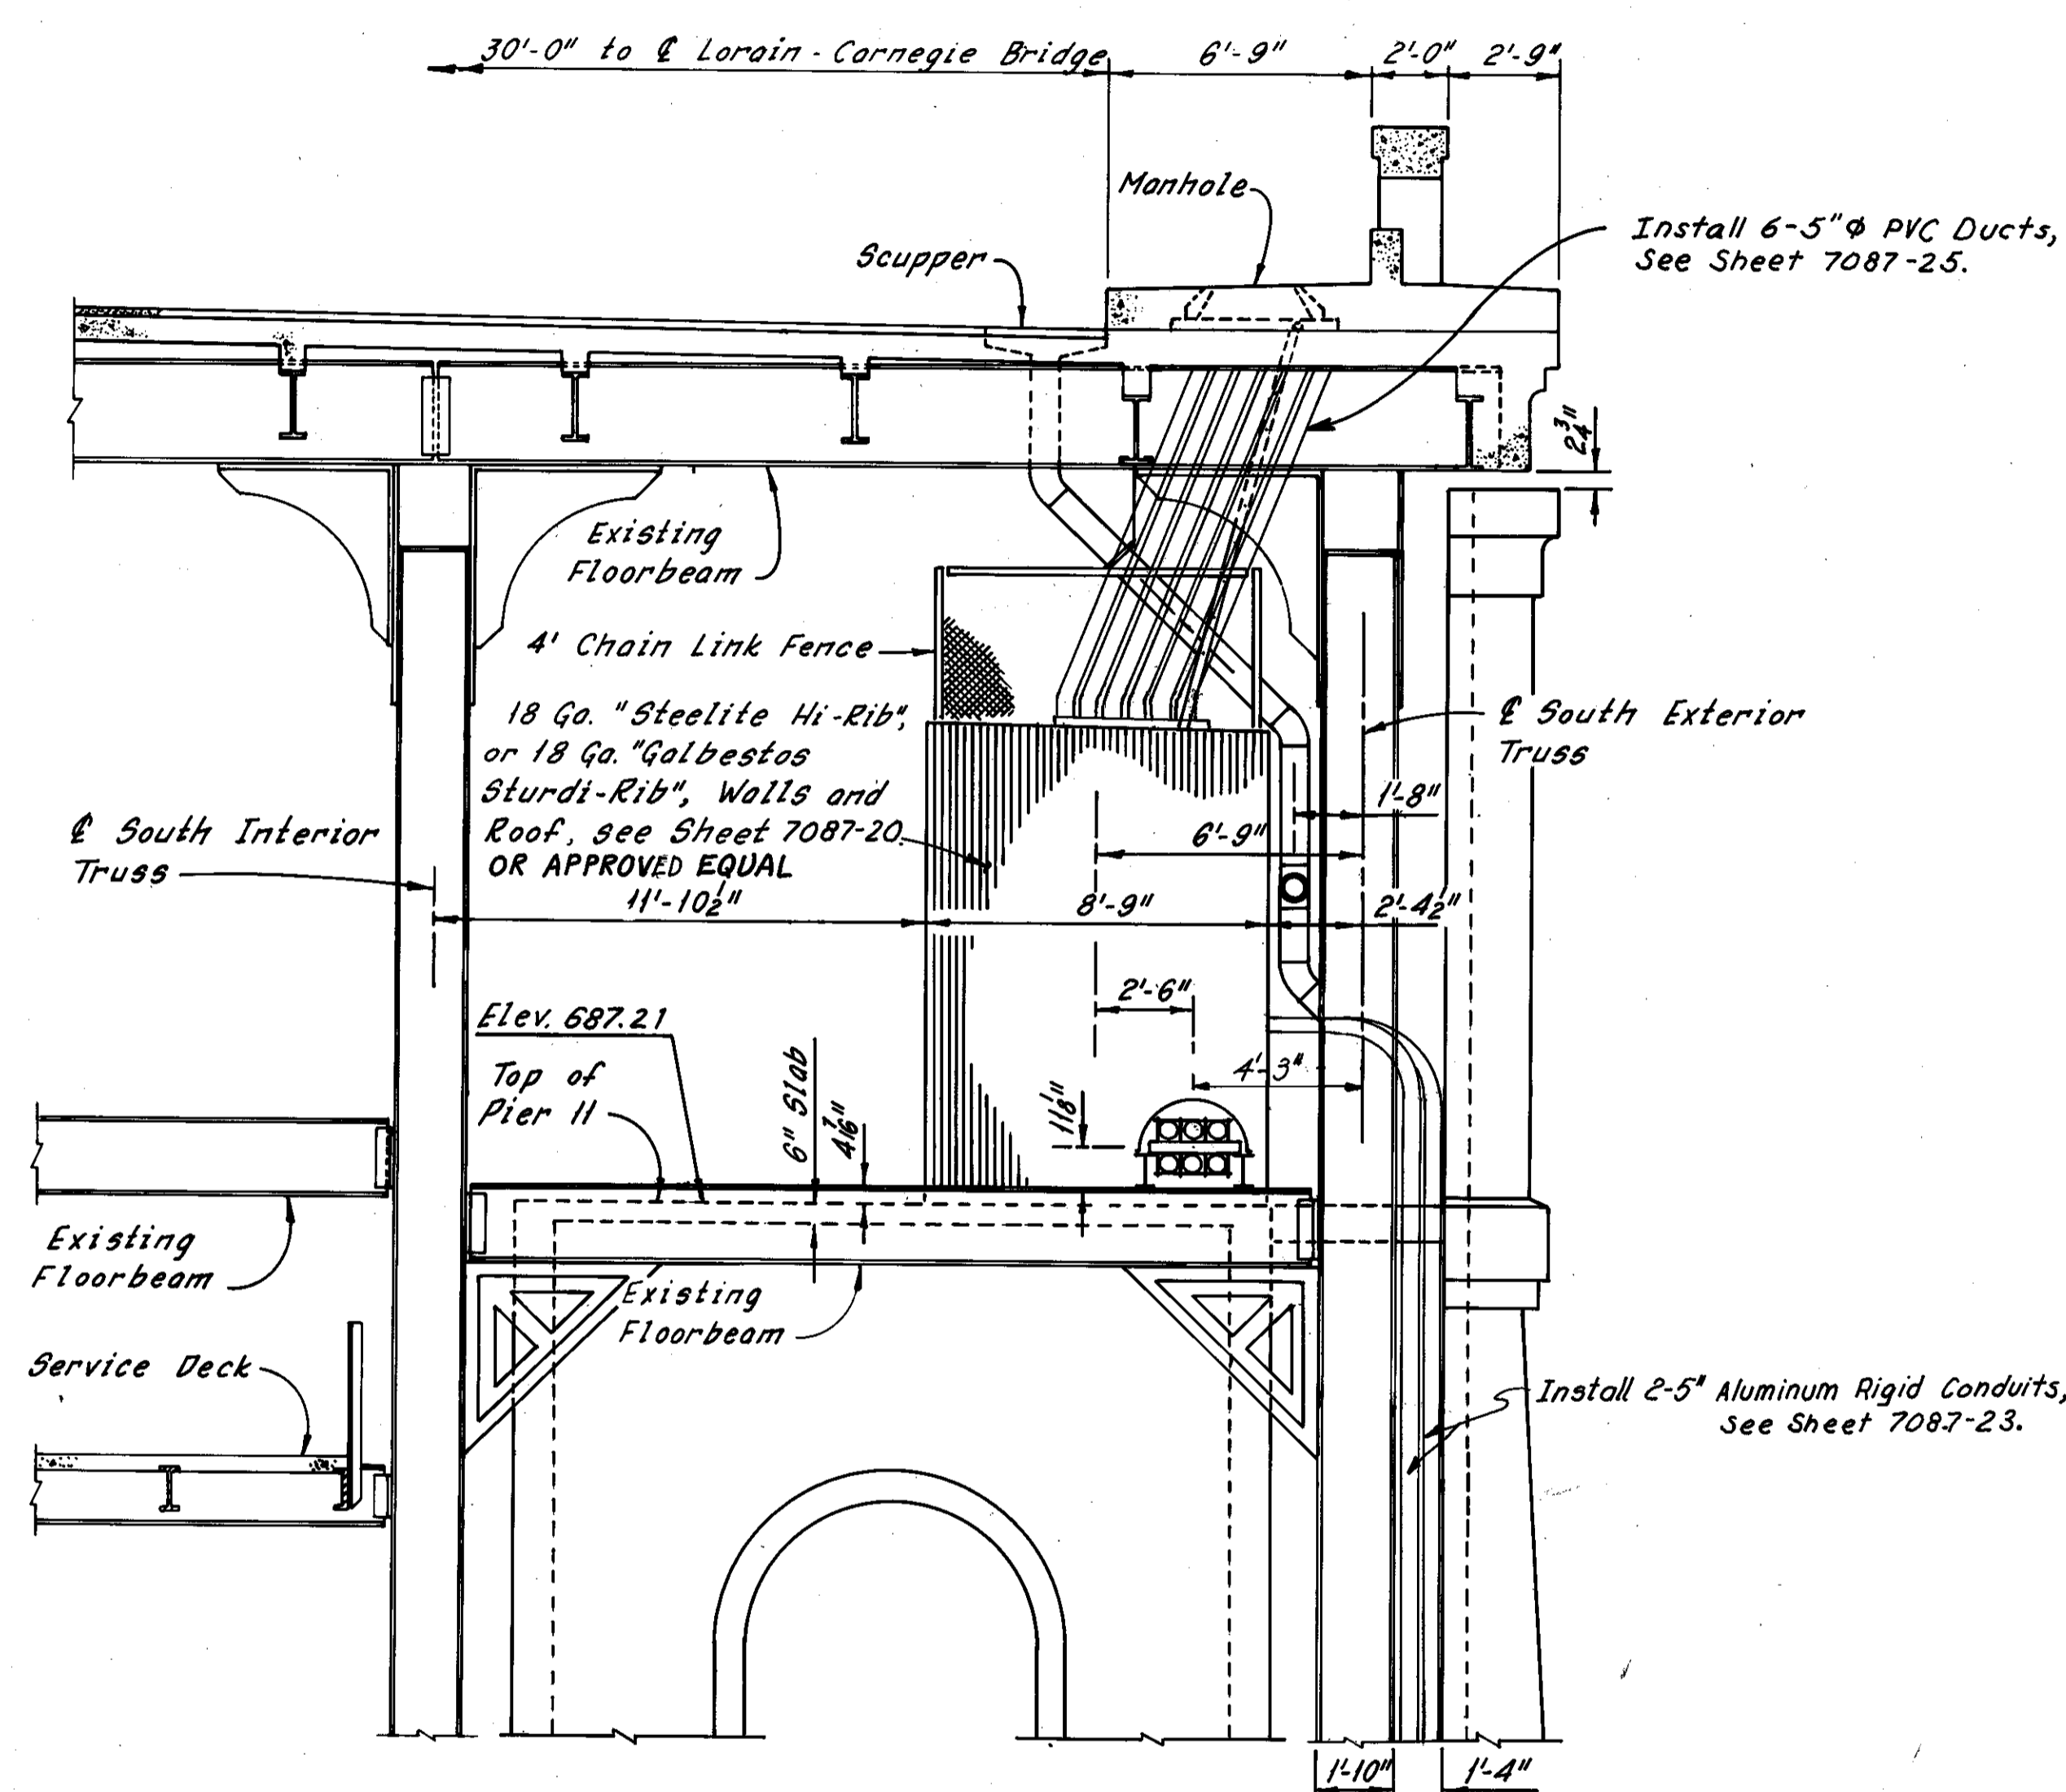 30'-0" to ℄ Lorain-Carnegie Bridge
6'-9"
2'-0"
2'-9"
Manhole
Install 6-5"φ PVC Ducts,
See Sheet 7087-25.
Scupper
2¾"
Existing
Floorbeam
4' Chain Link Fence
18 Ga. "Steelite Hi-Rib",
or 18 Ga. "Galbestos
Sturdi-Rib", Walls and
Roof, see Sheet 7087-20.
OR APPROVED EQUAL
℄ South Exterior
Truss
1'-8"
6'-9"
℄ South Interior
Truss
11'-10½"
8'-9"
2'-4½"
2'-6"
Elev. 687.21
Top of
Pier 11
6" Slab
4⁷⁄₁₆"
11⅛"
4'-3"
Existing
Floorbeam
Existing
Floorbeam
Service Deck
Install 2-5" Aluminum Rigid Conduits,
see Sheet 7087-23.
1'-10"
1'-4"